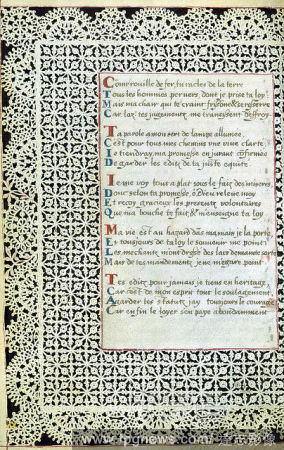 rouille de fer, tu racles de la terre
Tous les hommes pervers, dont je prise ta loy
Mais ma chair qui te craint frissone & se reserre
Car tes jugements me transissent d'effroy
Ta parole a mon sert de lampe allumee,
C'est pour tous mes chemins une vive clarte
Ie tiendray, ma promesse en jurant confirmee
De garder tes edits de ta juste equite
Ie me voy tout a plat sous le faix des miseres
Donc selon ta promesse, ô Dieu releve moy
Et reçoy gracieux les presents volontaires
Que ma bouche te fait & m'enseigne ta loy
Ma vie est au hazard dans ma main je la porte
Et toujours de ta loy le souvenir me point
Les mechants m'ont dressé des lacs de sorte
Mais de tes mandements je ne m'egare point
Tes edits pour jamais je tiens en heritage
Car c'est de mon esprit tout le soulagement
A garder tes statuts j'ay toujours le courage
Car en fin le loyer s'en paye abondamment
www.tpgnews.com